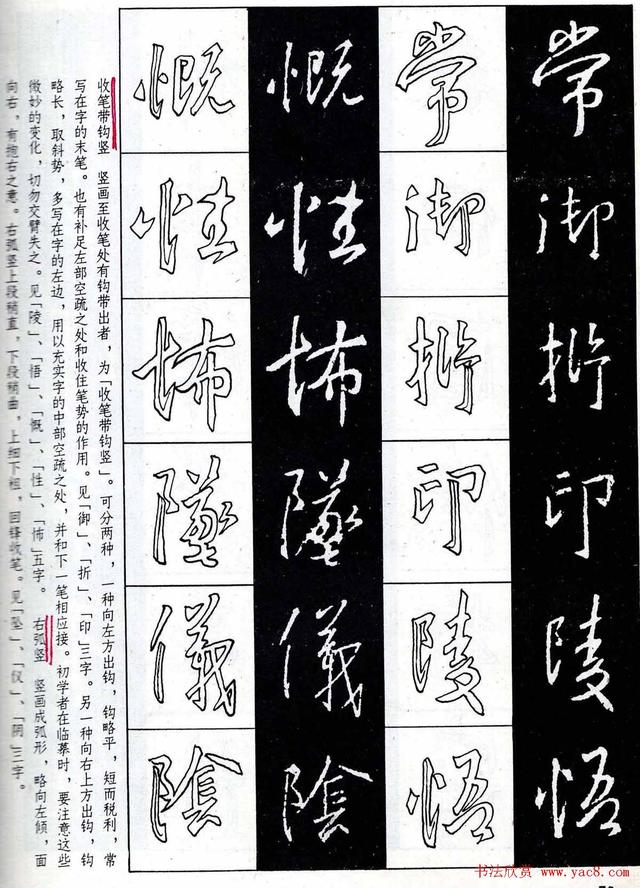 常御折印陵悟
常御折印陵悟
慨性怖墜儀陰
慨性怖墜儀陰
收笔带钩竖　竖画至收笔处有钩带出者，为「收笔带钩竖」。可分两种，一种向左方出钩，钩略平，短而税利，常
写在字的末笔。也有补足左部空疏之处和收住笔势的作用。见「御」、「折」、「印」三字。另一种向右上方出钩，钩
略长，取斜势，多写在字的左边，用以充实字的中部空疏之处，并和下一笔相应接。初学者在临摹时，要注意这些
微妙的变化，切勿交臂失之。见「陵」、「悟」、「慨」、「性」、「怖」五字。　右弧竖　竖画成弧形，略向左倾，面
向右，有抱右之意。右弧竖上段稍直，下段稍曲，上细下粗，回锋收笔。见「坠」、「仪」、「阴」三字。
书法欣赏 www.yac8.com